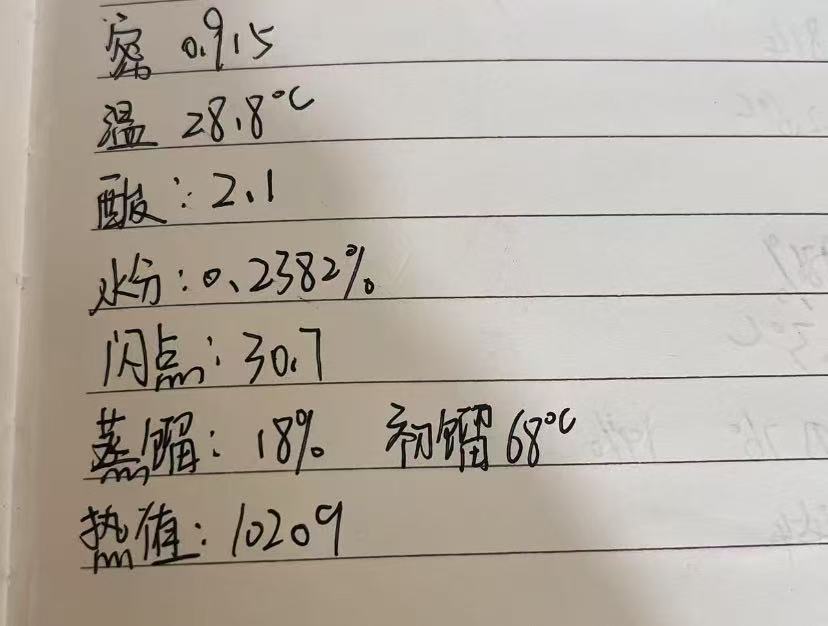 密 0.915
温 28.8°C
酸: 2.1
水分: 0.2382%
闪点: 30.7
蒸馏: 18% 初馏 68°C
热值: 10209